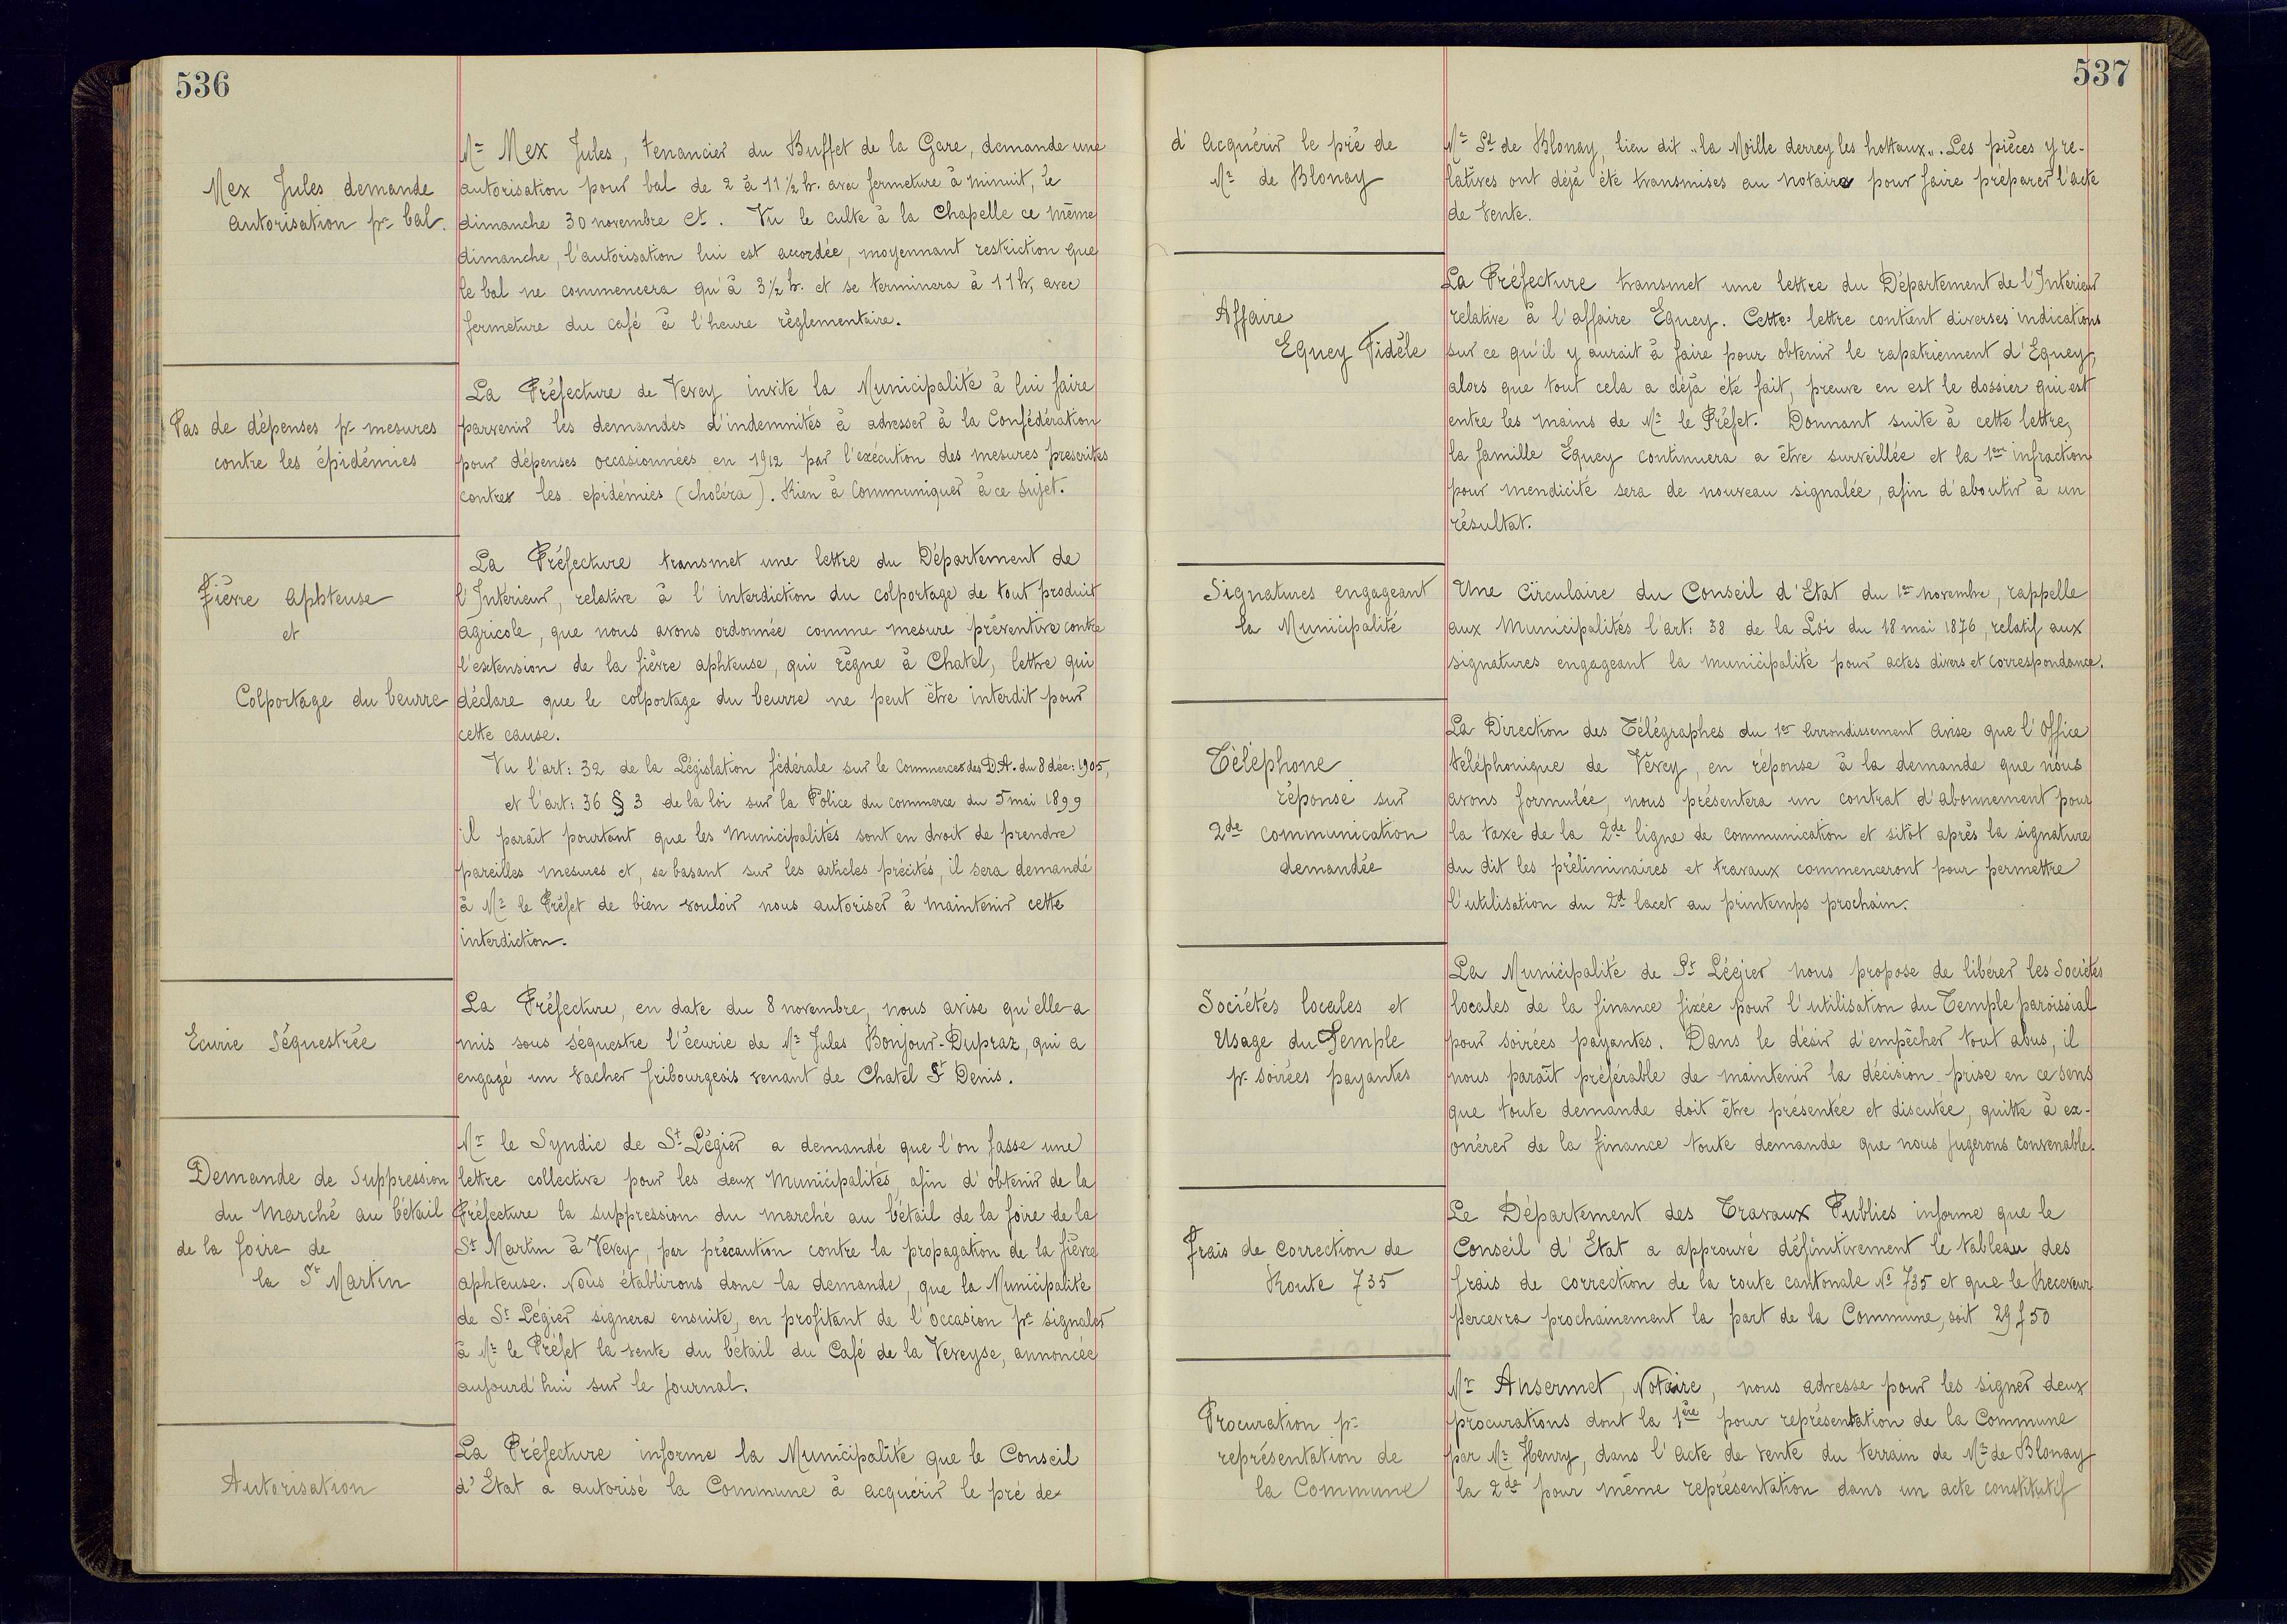 536
Mex Jules demande
autorisation pr bal.
Mr Mex Jules, tenancier du Buffet de la Gare, demande une
autorisation pour bal de 2 à 11 1/2 h. avec fermeture à minuit, le
dimanche 30 novembre ct. Vu le culte à la Chapelle ce même
dimanche, l'autorisation lui est accordée, moyennant restriction que
le bal ne commencera qu'à 3 1/2 h. et se terminera à 11 h, avec
fermeture du café à l'heure règlementaire.
Pas de dépenses pr mesures
contre les épidémies
La Préfecture de Vevey invite la Municipalité à lui faire
parvenir les demandes d'indemnités à adresser à la Confédération
pour dépenses occasionnées en 1912 par l'exécution des mesures prescrites
contre les épidémies (choléra). Rien à communiquer à ce sujet.
Fièvre Aphteuse
et
Colportage du beurre
La Préfecture transmet une lettre du Département de
l'Intérieur, relative à l'interdiction du colportage de tout produit
agricole, que nous avons ordonnée comme mesure préventive contre
l'extension de la fièvre aphteuse, qui règne à Chatel, lettre qui
déclare que le colportage du beurre ne peut être interdit pour
cette cause.
Vu l'art: 32 de la Législation fédérale sur le Commerce des D.A. du 8 déc: 1905,
et l'art: 36 § 3 de la loi sur la Police du commerce du 5 mai 1899
il paraît pourtant que les Municipalités sont en droit de prendre
pareilles mesures et, se basant sur les articles précités, il sera demandé
à Mr le Préfet de bien vouloir nous autoriser à maintenir cette
interdiction.
Ecurie Séquestrée
La Préfecture, en date du 8 novembre, nous avise qu'elle a
mis sous séquestre l'écurie de Mr Jules Bonjour-Dupraz, qui a
engagé un vacher fribourgeois venant de Chatel St Denis.
Demande de Suppression
du Marché au bétail
de la foire de
la St Martin
Mr le Syndic de St Légier a demandé que l'on fasse une
lettre collective pour les deux Municipalités, afin d'obtenir de la
Préfecture la suppression du marché au bétail de la foire de la
St Martin à Vevey, par précaution contre la propagation de la fièvre
aphteuse. Nous établirons donc la demande, que la Municipalité
de St Légier signera ensuite, en profitant de l'occasion pr signaler
à Mr le Préfet la vente du bétail du Café de la Veveyse, annoncée
aujourd'hui sur le journal.
Autorisation
La Préfecture informe la Municipalité que le Conseil
d'Etat a autorisé la Commune à acquérir le pré de
537
d'Acquérir le pré de
Mr de Blonay
Mr St de Blonay, lieu dit "la Moille derrey les hottaux". Les pièces y re-
latives ont déjà été transmises au notaire pour faire préparer l'acte
de vente.
Affaire
Equey Fidèle
La Préfecture transmet une lettre du Département de l'Intérieur
relative à l'affaire Equey. Cette lettre contient diverses indications
sur ce qu'il y aurait à faire pour obtenir le rapatriement d'Equey,
alors que tout cela a déjà été fait, preuve en est le dossier qui est
entre les mains de Mr le Préfet. Donnant suite à cette lettre,
la famille Equey continuera a être surveillée et la 1ère infraction
pour mendicité sera de nouveau signalée, afin d'aboutir à un
résultat.
Signatures engageant
la Municipalité
Une Circulaire du Conseil d'Etat du 1er novembre, rappelle
aux Municipalités l'art: 38 de la Loi du 18 mai 1876, relatif aux
signatures engageant la municipalité pour actes divers et correspondance.
Téléphone
réponse sur
2de communication
demandée
La Direction des Télégraphes du 1er Arrondissement avise que l'Office
téléphonique de Vevey, en réponse à la demande que nous
avons formulée, nous présentera un contrat d'abonnement pour
la taxe de la 2de ligne de communication et sitôt après la signature
du dit les préliminaires et travaux commenceront pour permettre
l'utilisation du 2d lacet au printemps prochain.
Sociétés locales et
Usage du Temple
pr soirées payantes
La Municipalité de St Légier nous propose de libérer les Sociétés
locales de la finance fixée pour l'utilisation du Temple paroissial
pour soirées payantes. Dans le désir d'empêcher tout abus, il
nous paraît préférable de maintenir la décision prise en ce sens
que toute demande doit être présentée et discutée, quitte à ex-
onérer de la finance toute demande que nous jugerons convenable.
Frais de Correction de
Route 735
Le Département des Travaux Publics informe que le
Conseil d'Etat a approuvé définitivement le tableau des
frais de correction de la route cantonale No 735 et que le Receveur
percevra prochainement la part de la Commune, soit 29 f 50
Procuration pr
représentation de
la Commune
Mr Ansermet, Notaire, nous adresse pour les signer deux
procurations dont la 1ère pour représentation de la Commune
par Mr Henry, dans l'acte de vente du terrain de Mr de Blonay
la 2de pour même représentation dans un acte constitutif